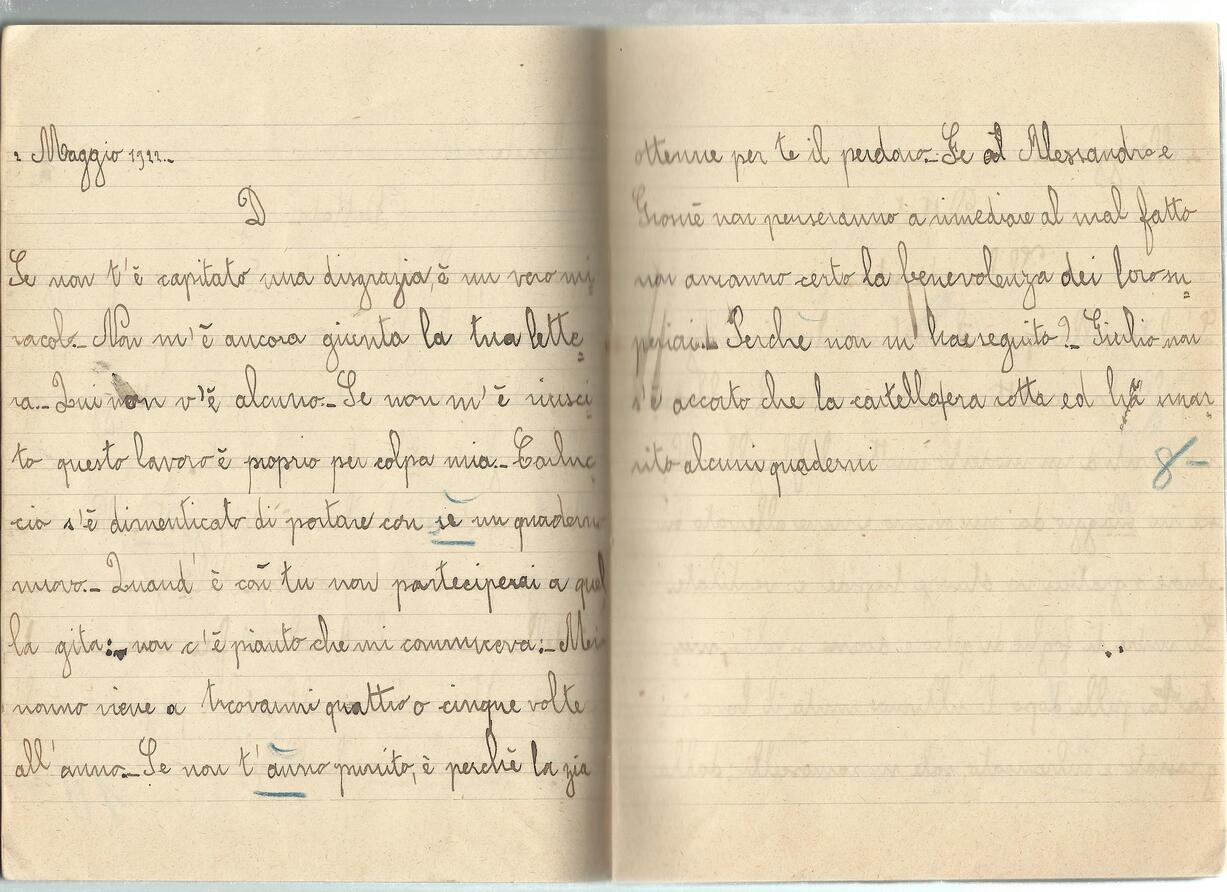 2 Maggio 1922.
D
Se non t'è capitato una disgrazia, è un vero mi
racolo. Non m'è ancora giunta la tua lette=
ra. Qui non v'è alcuno. Se non m'è riusci
to questo lavoro è proprio per colpa mia. Carluc
cio s'è dimenticato di portare con sè un quaderno
nuovo. Quand'è così tu non parteciperai a quel
la gita: non c'è pianto che mi commuova: Mio
nonno viene a trovarmi quattro o cinque volte
all'anno. Se non t'ànno punito, è perchè la zia
ottenne per te il perdono. Se Alessandro e
Giosuè non penseranno a rimediare al mal fatto
non avranno certo la benevolenza dei loro su=
periori. Perchè non m'hai seguito? Giulio non
s'è accorto che la cartella era rotta ed ha smar
rito alcuni quaderni
8-